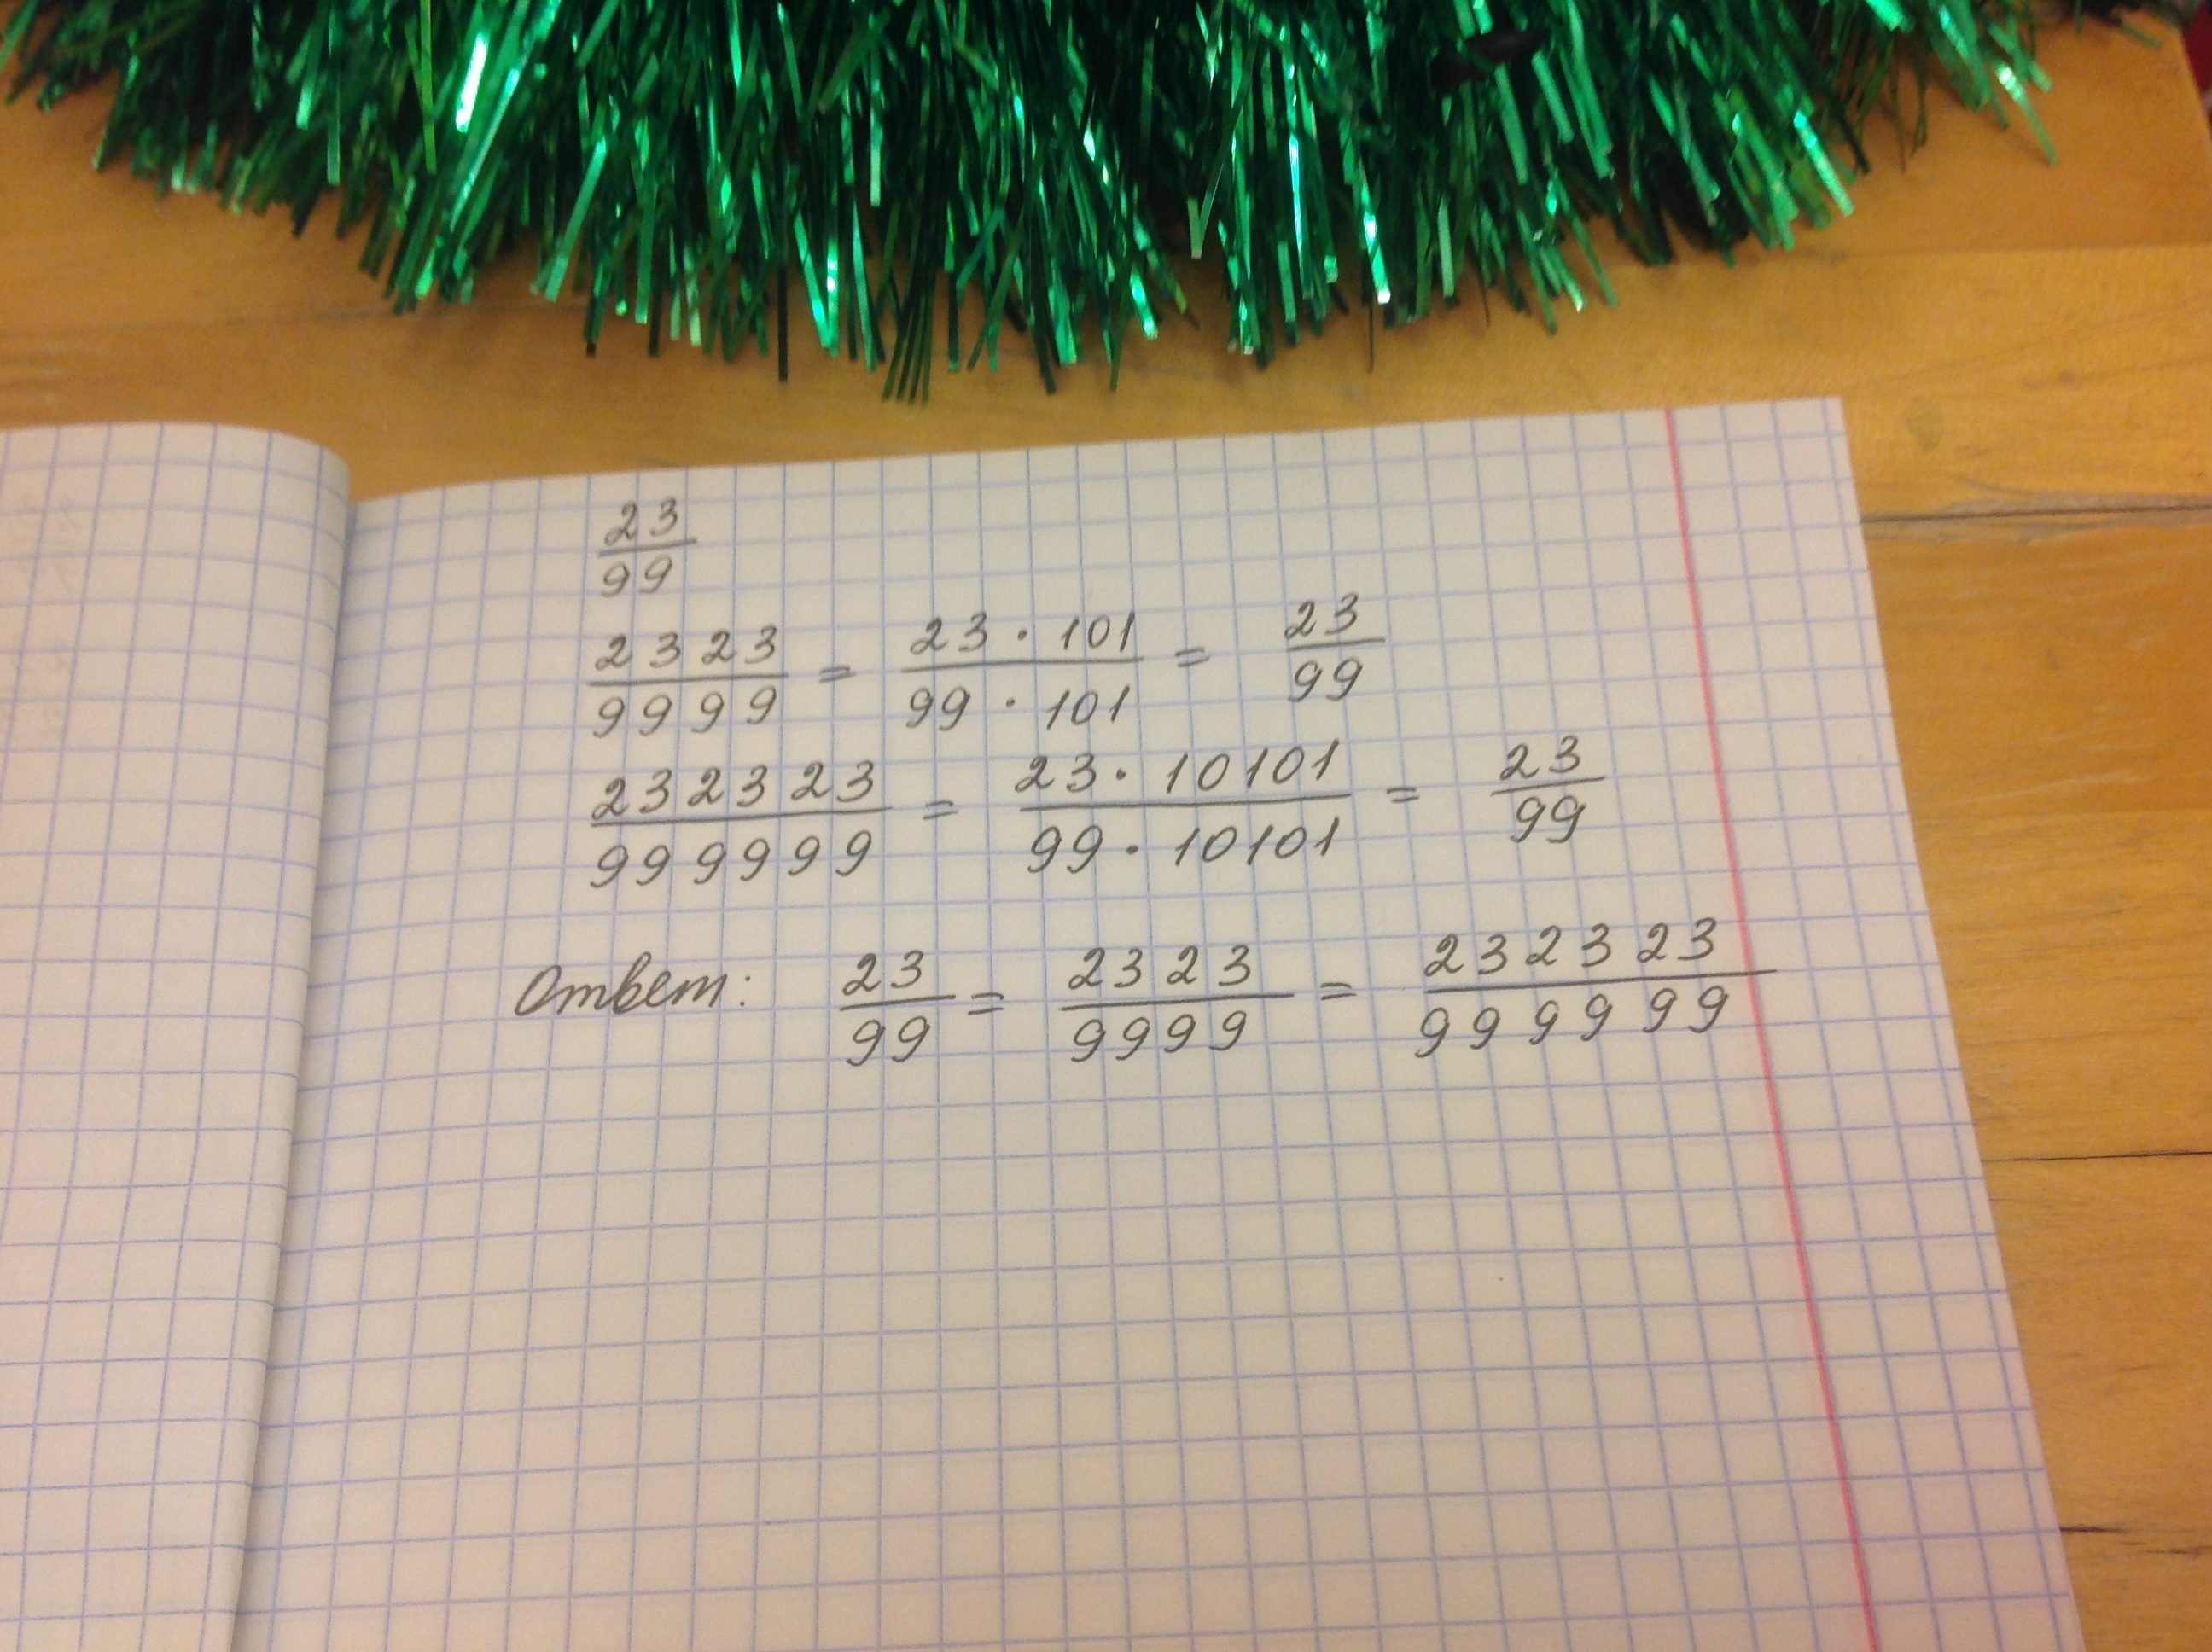 23/99
2323/9999 = 23 · 101/99 · 101 = 23/99
232323/999999 = 23 · 10101/99 · 10101 = 23/99
Ответ: 23/99 = 2323/9999 = 232323/999999